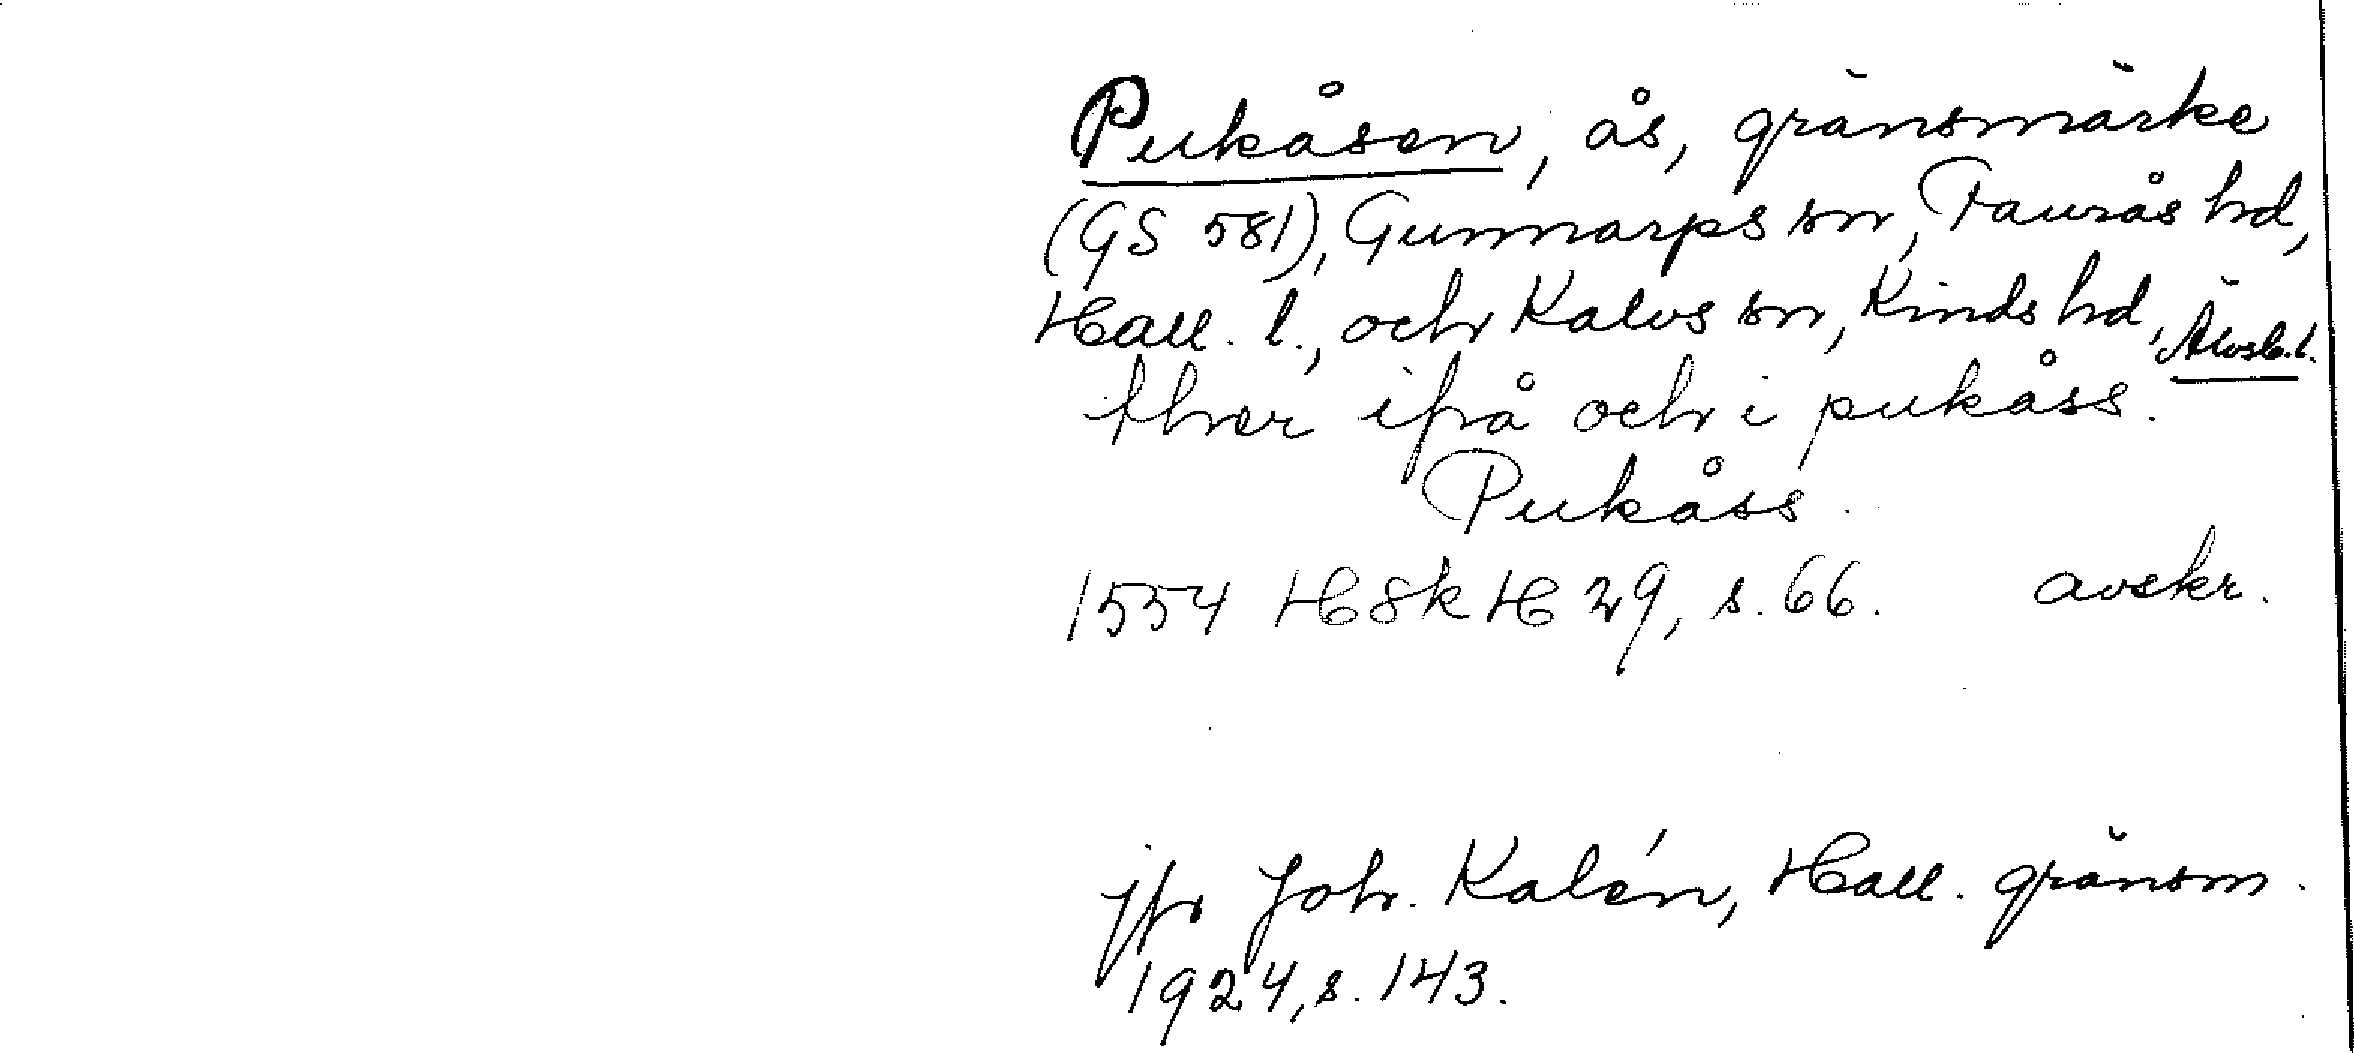 Pukåsen, ås, gränsmärke
(GS 581), Gunnarps sn, Faurås hd,
Hall. l., och Kalvs sn, Kinds hd, Älvsb. l.
ther ifrå och i pukåss.
Pukåss.
1554 H8k H 29, s. 66. avskr.
jfr Joh. Kalén, Hall. gränsm.
1924, s. 143.